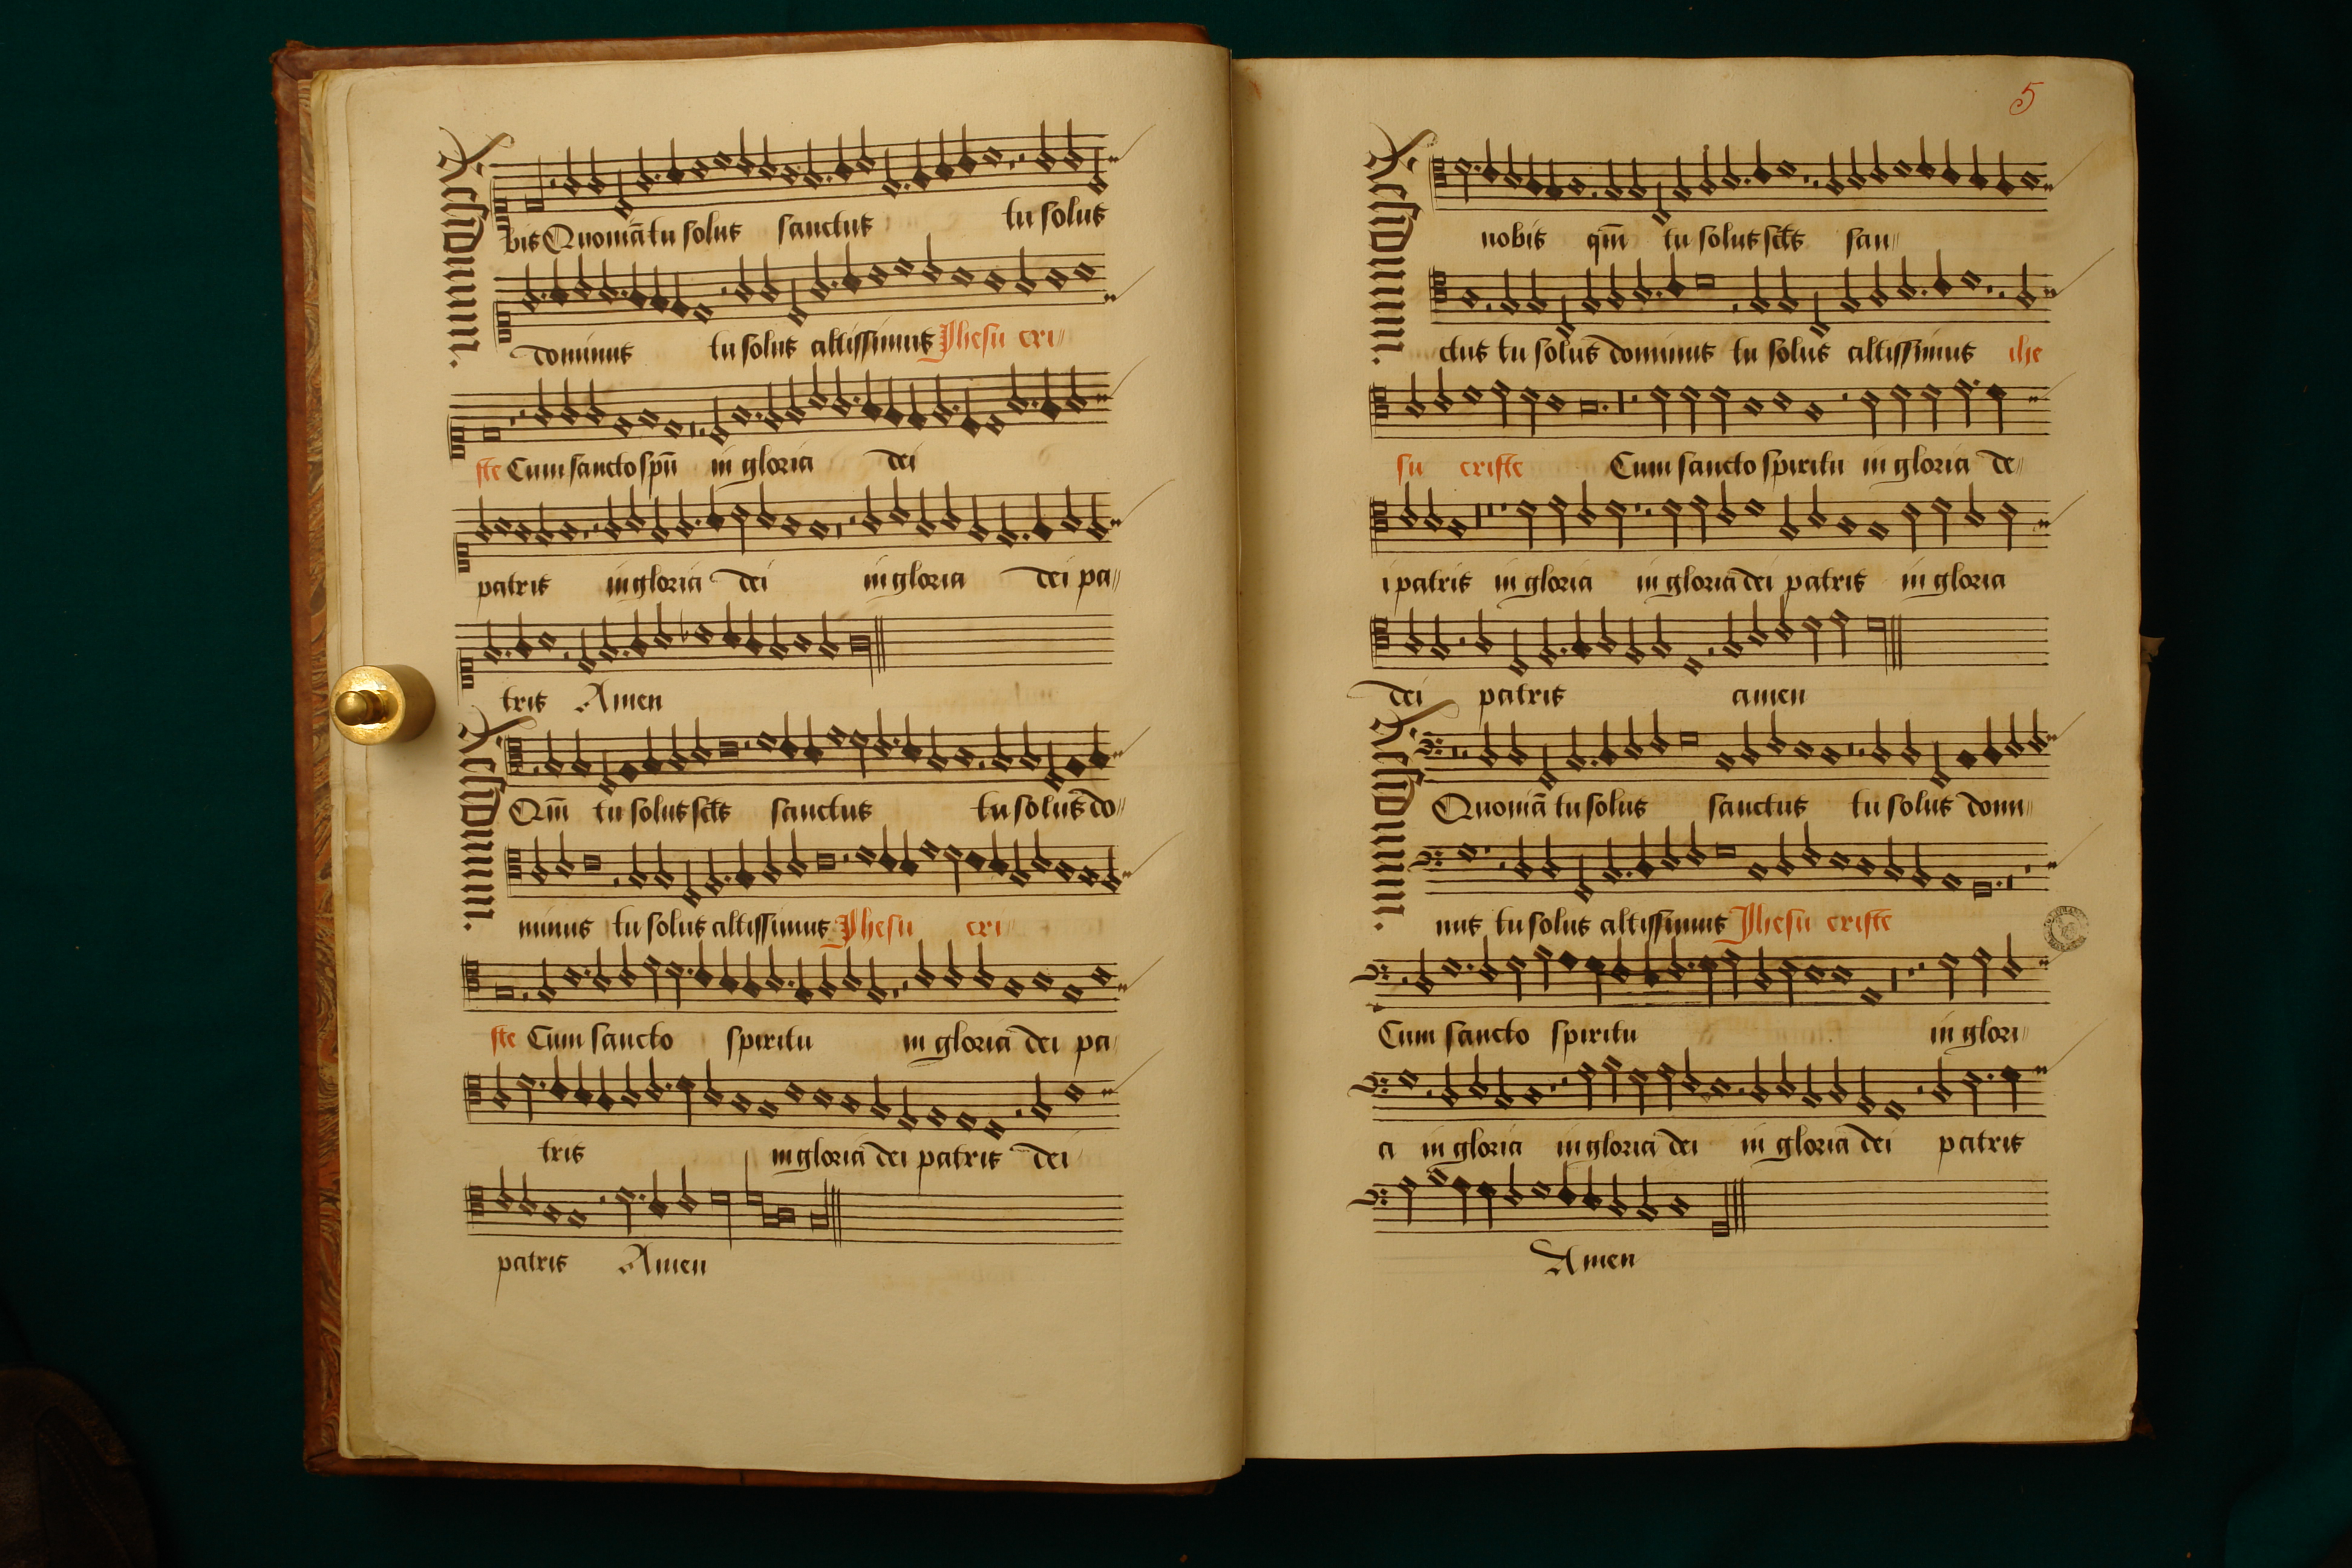 Residuum.
bis Quoniā tu solus sanctus tu solus
dominus tu solus altissimus Jhesu cri〃
ste Cum sancto spū in gloria dei
patris in gloria dei in gloria dei pa〃
tris Amen
Residuum.
Qm̄ tu solus sc̄ts sanctus tu solus do〃
minus tu solus altissimus Jhesu cri
ste Cum sancto spiritu in gloria dei pa〃
tris in gloria dei patris dei
patris Amen
5
Residuum.
nobis qm̄ tu solus sc̄ts san〃
ctus tu solus dominus tu solus altissimus ihe
su criste Cum sancto spiritu in gloria de〃
i patris in gloria in gloria dei patris in gloria
dei patris amen
Residuum.
Quoniā tu solus sanctus tu solus domi〃
nus tu solus altissimus Jhesu criste
Cum sancto spiritu in glori〃
a in gloria in gloria dei in gloria dei patris
Amen